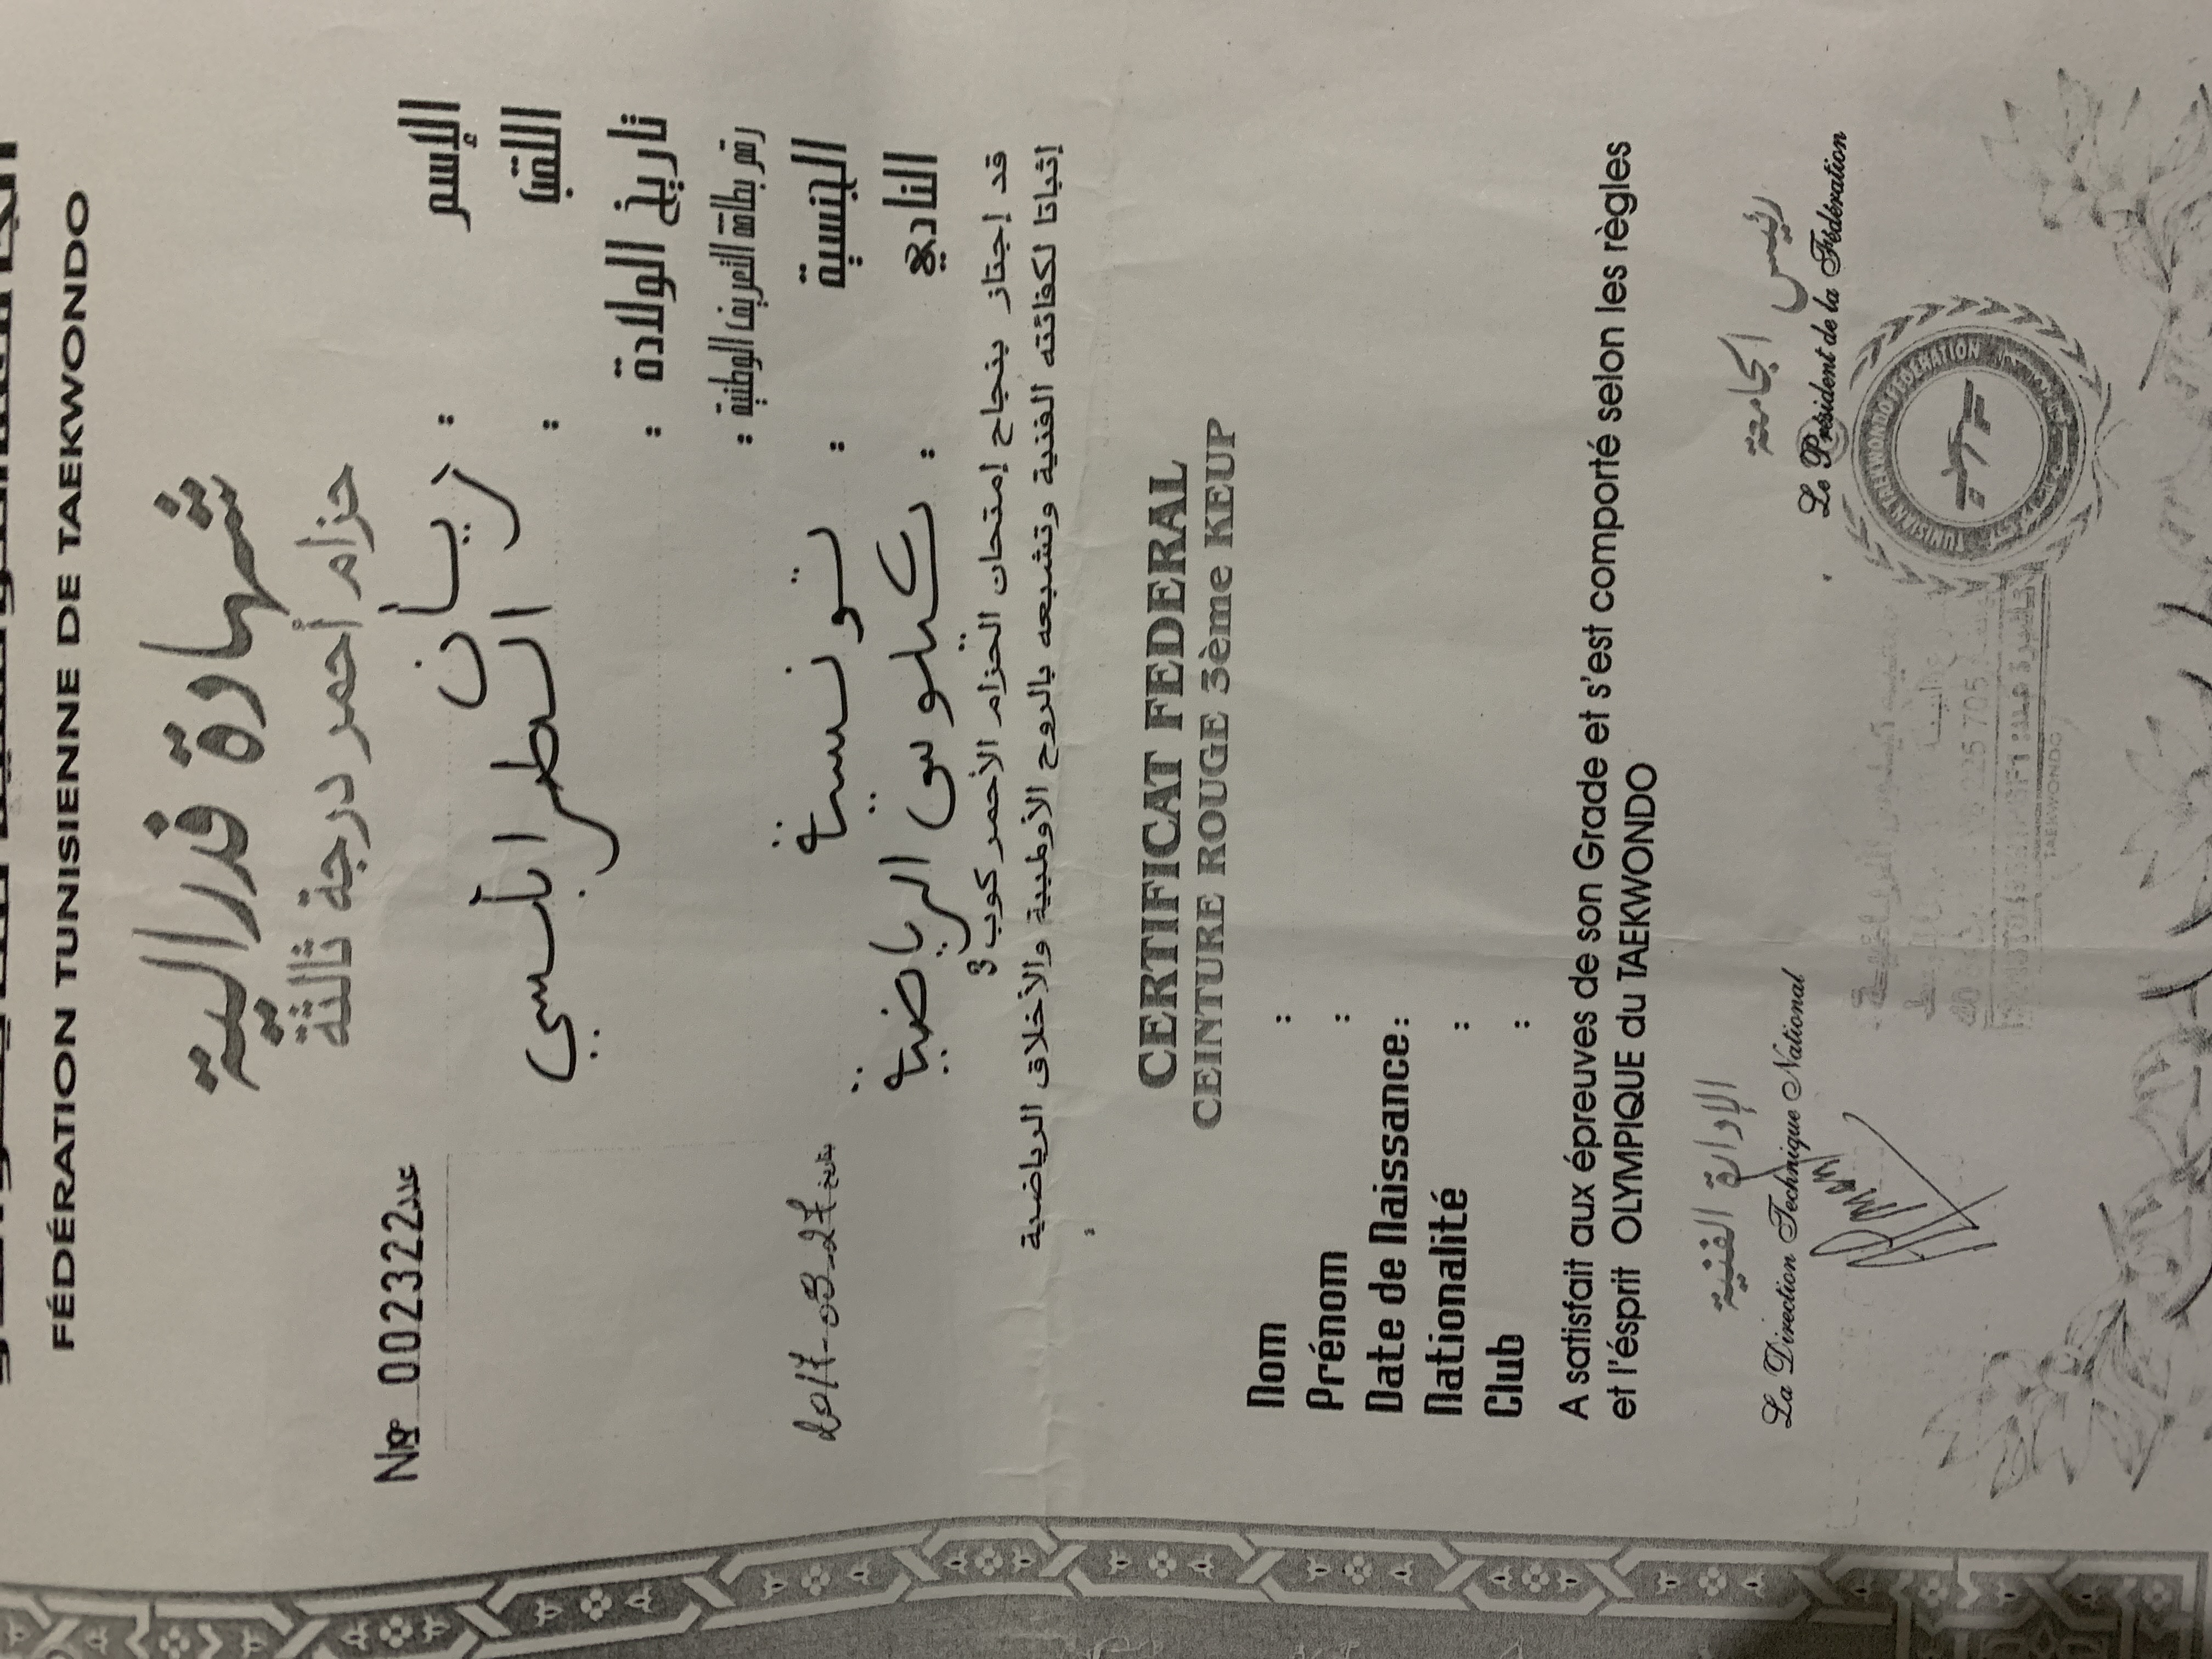 FÉDÉRATION TUNISIENNE DE TAEKWONDO
شهادة فدرالية
حزام أحمر درجة ثالثة
Nº 002322 عدد
الإسم : ريان
اللقب : الطرابلسي
تاريخ الولادة :
رقم بطاقة التعريف الوطنية :
الجنسية : تونسية
2017-08-27 بتاريخ
النادي : الرياضية
قد إجتاز بنجاح إمتحان الحزام الأحمر كوب 3
إثباتا لكفائته الفنية وتشبعه بالروح الأولمبية والأخلاق الرياضية
CERTIFICAT FEDERAL
CEINTURE ROUGE 3ème KEUP
Nom :
Prénom :
Date de Naissance :
Nationalité :
Club :
A satisfait aux épreuves de son Grade et s'est comporté selon les règles
et l'ésprit OLYMPIQUE du TAEKWONDO
الإدارة الفنية
La Direction Technique National
رئيس الجامعة
Le Président de la Fédération
TUNISIAN TAEKWONDO FEDERATION
TAEKWONDO